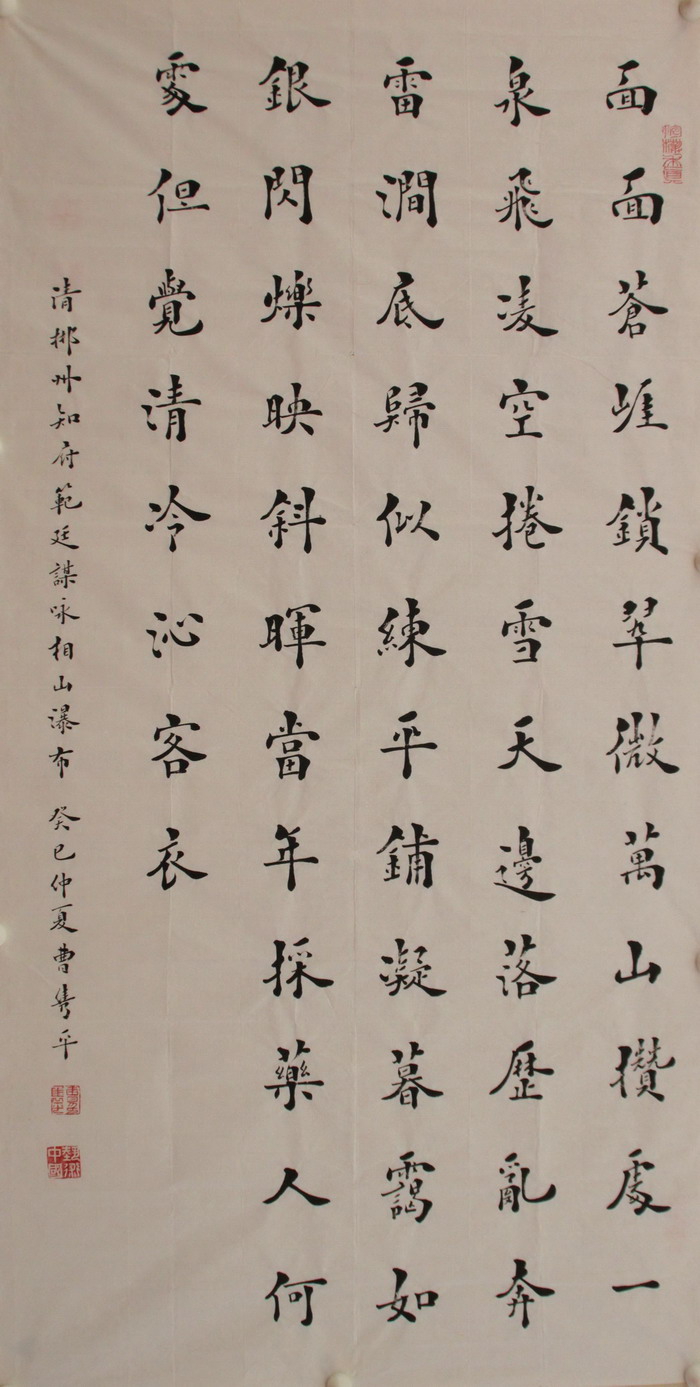 面面蒼崕鎖翠微萬山攢處一
泉飛凌空捲雪天邊落歷亂奔
雷澗底歸似練平鋪凝暮靄如
銀閃爍映斜暉當年採藥人何
處但覺清冷沁客衣
清郴州知府範廷謀咏相山瀑布 癸巳仲夏曹雋平